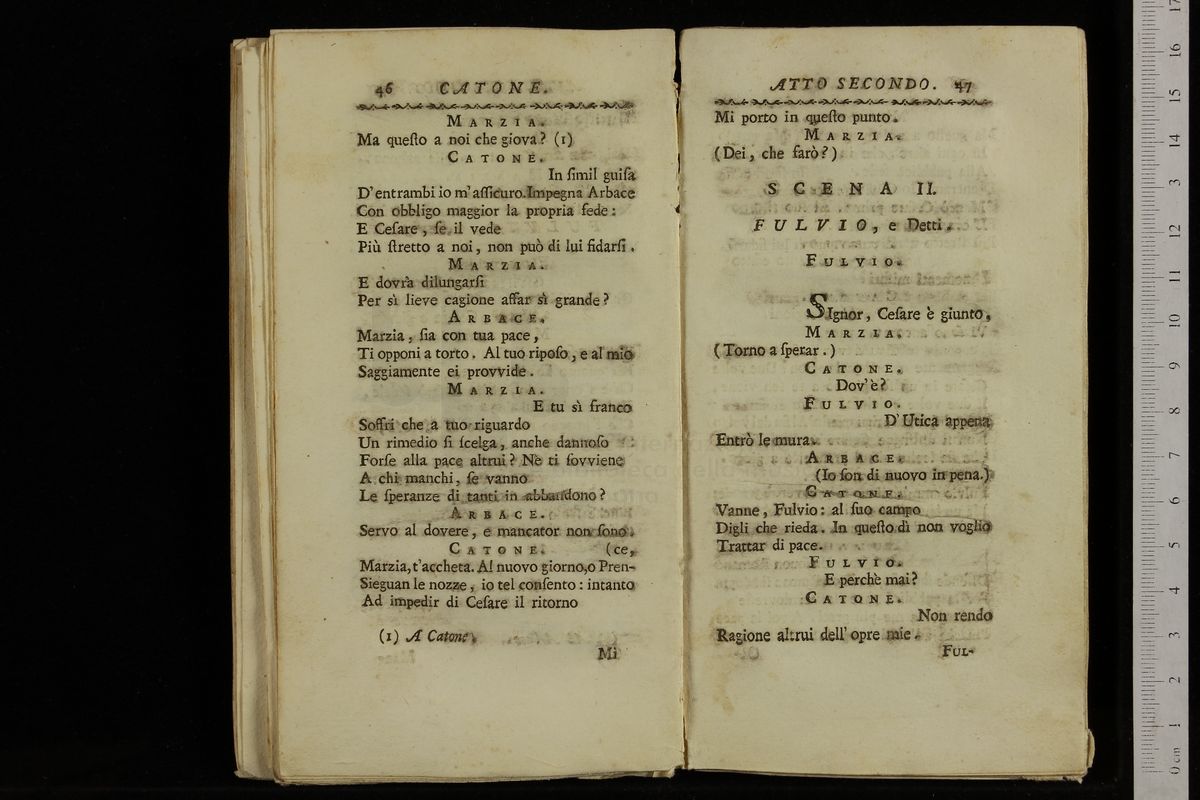 46 CATONE.
MARZIA.
Ma queſto a noi che giova? (1)
CATONE.
In ſimil guiſa
D'entrambi io m'aſſicuro. Impegna Arbace
Con obbligo maggior la propria fede:
E Ceſare, ſe il vede
Più ſtretto a noi, non può di lui fidarſi.
MARZIA.
E dovrà dilungarſi
Per sì lieve cagione affar sì grande?
ARBACE.
Marzia, ſia con tua pace,
Ti opponi a torto. Al tuo ripoſo, e al mio
Saggiamente ei provvide.
MARZIA.
E tu sì franco
Soffri che a tuo riguardo
Un rimedio ſi ſcelga, anche dannoſo
Forſe alla pace altrui? Nè ti ſovviene
A chi manchi, ſe vanno
Le ſperanze di tanti in abbandono?
ARBACE.
Servo al dovere, e mancator non ſono.
CATONE. (ce,
Marzia, t'accheta. Al nuovo giorno, o Pren-
Sieguan le nozze, io tel conſento: intanto
Ad impedir di Ceſare il ritorno
(1) A Catone.
Mi
ATTO SECONDO. 47
Mi porto in queſto punto.
MARZIA.
(Dei, che farò?)
SCENA II.
FULVIO, e Detti.
FULVIO.
SIgnor, Ceſare è giunto.
MARZIA.
(Torno a ſperar.)
CATONE.
Dov'è?
FULVIO.
D'Utica appena
Entrò le mura.
ARBACE.
(Io ſon di nuovo in pena.)
CATONE.
Vanne, Fulvio: al ſuo campo
Digli che rieda. In queſto dì non voglio
Trattar di pace.
FULVIO.
E perchè mai?
CATONE.
Non rendo
Ragione altrui dell'opre mie.
FUL-